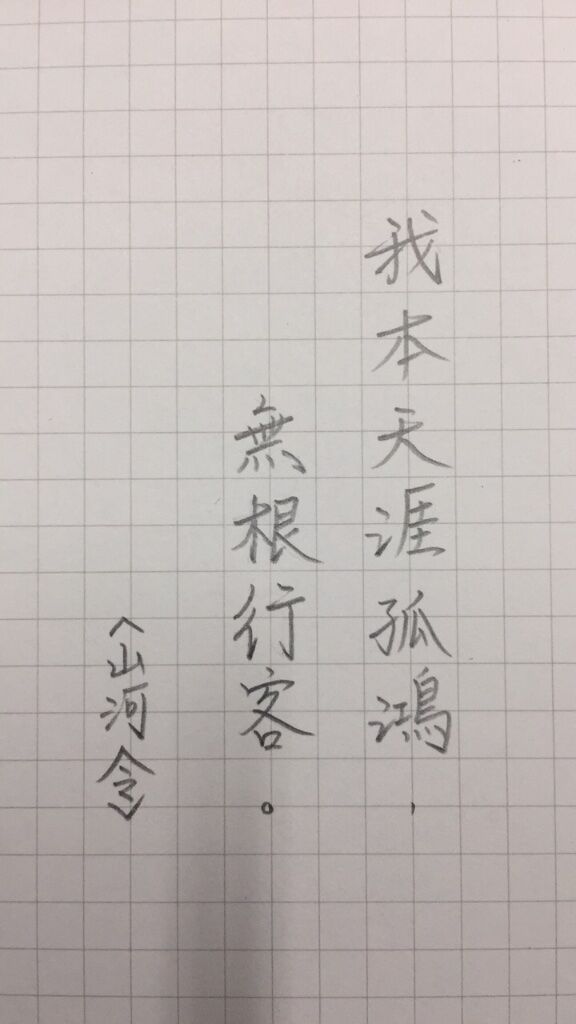 我本天涯孤鴻，
無根行客。
《山河令》